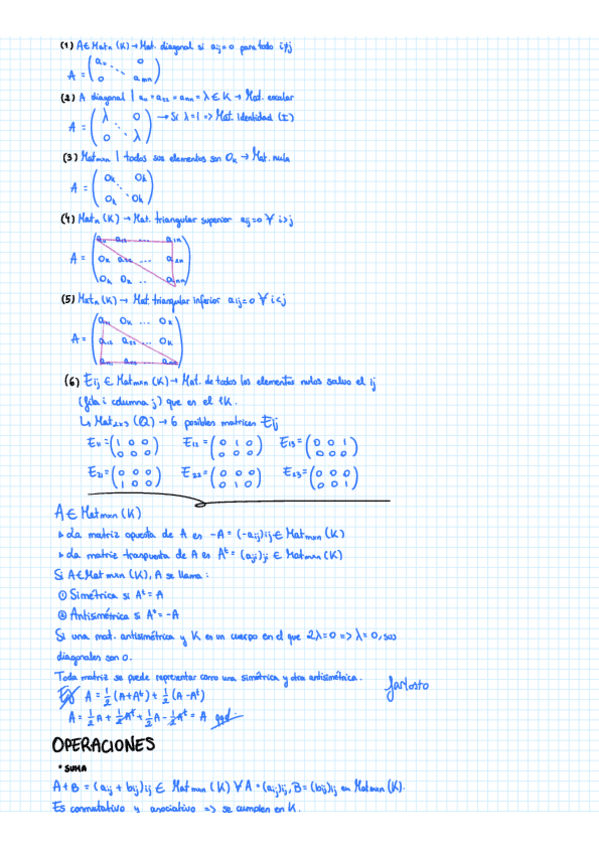 (1) A∈Matn (K) → Mat. diagonal si aij = 0 para todo i≠j
A = ( a11 0
0 amn )
(2) A diagonal | a11 = a22 = ann = λ ∈ K → Mat. escalar
A = ( λ 0 → Si λ=1 => Mat. Identidad (I)
0 λ )
(3) Matmxn | todos sus elementos son 0k → Mat. nula
A = ( 0k 0k
0k 0k )
(4) Matn (K) → Mat. triangular superior aij = 0 ∀ i>j
A = ( a11 a12 ... a1n
0k a22 ... a2n
0k 0k .. ann )
(5) Matn (K) → Mat. triangular inferior aij = 0 ∀ i<j
A = ( a11 0k ... 0k
a12 a22 ... 0k
an1 an2 ... ann )
(6) Eij ∈ Matmxn (K) → Mat. de todos los elementos nulos salvo el ij
(fila i columna j) que es el 1K.
↳ Mat2x3 (Q) → 6 posibles matrices Eij
E11 = ( 1 0 0 / 0 0 0 ) E12 = ( 0 1 0 / 0 0 0 ) E13 = ( 0 0 1 / 0 0 0 )
E21 = ( 0 0 0 / 1 0 0 ) E22 = ( 0 0 0 / 0 1 0 ) E23 = ( 0 0 0 / 0 0 1 )
A ∈ Matmxn (K)
La matriz opuesta de A es -A = (-aij)ij ∈ Matmxn (K)
La matriz traspuesta de A es At = (aij)ji ∈ Matmxn (K)
Si A∈Matmxn (K), A se llama:
① Simétrica si At = A
② Antisimétrica si At = -A
Si una mat. antisimétrica y K es un cuerpo en el que 2λ=0 => λ=0, sus
diagonales son 0.
Toda matriz se puede representar como una simétrica y otra antisimétrica.
A = 1/2 (A+At) + 1/2 (A-At)
A = 1/2 A + 1/2 At + 1/2 A - 1/2 At = A qed.
OPERACIONES
* SUMA
A+B = (aij + bij)ij ∈ Matmxn (K) ∀ A = (aij)ij, B = (bij)ij en Matmxn (K).
Es conmutativo y asociativo => se cumplen en K.